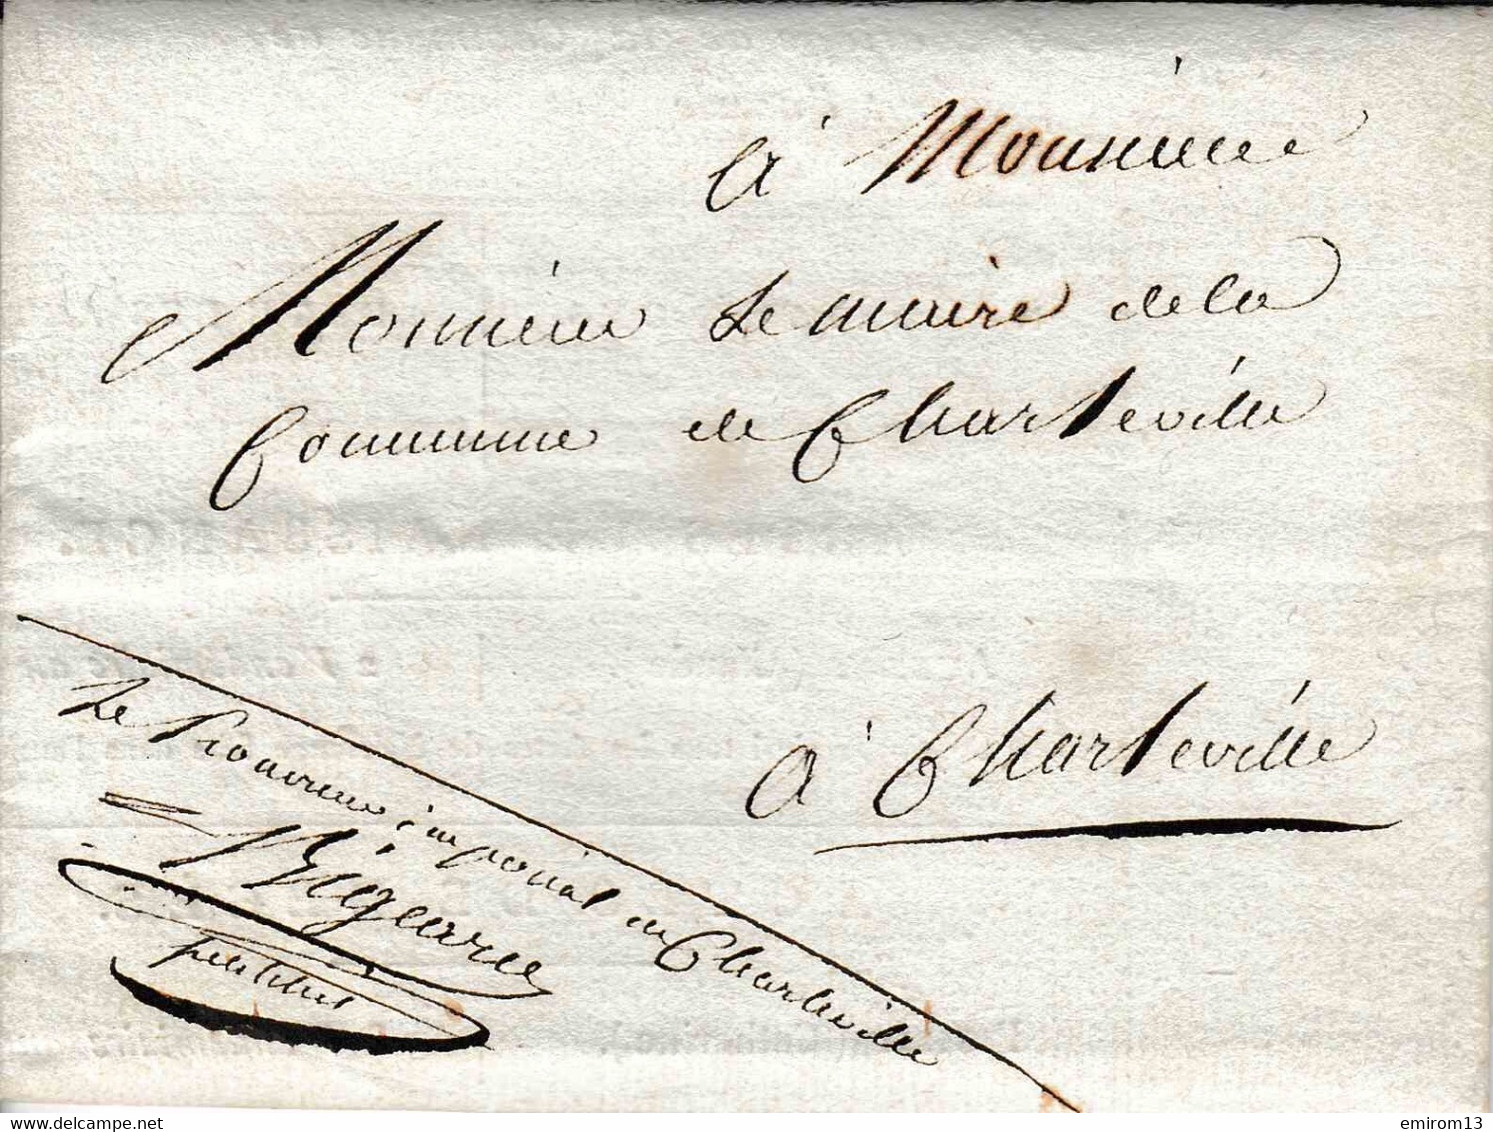 à Monsieur
Monsieur Le maire de la
Commune de Charleville
à Charleville
Le Procureur impérial en Charleville
delcampe.net
emirom13